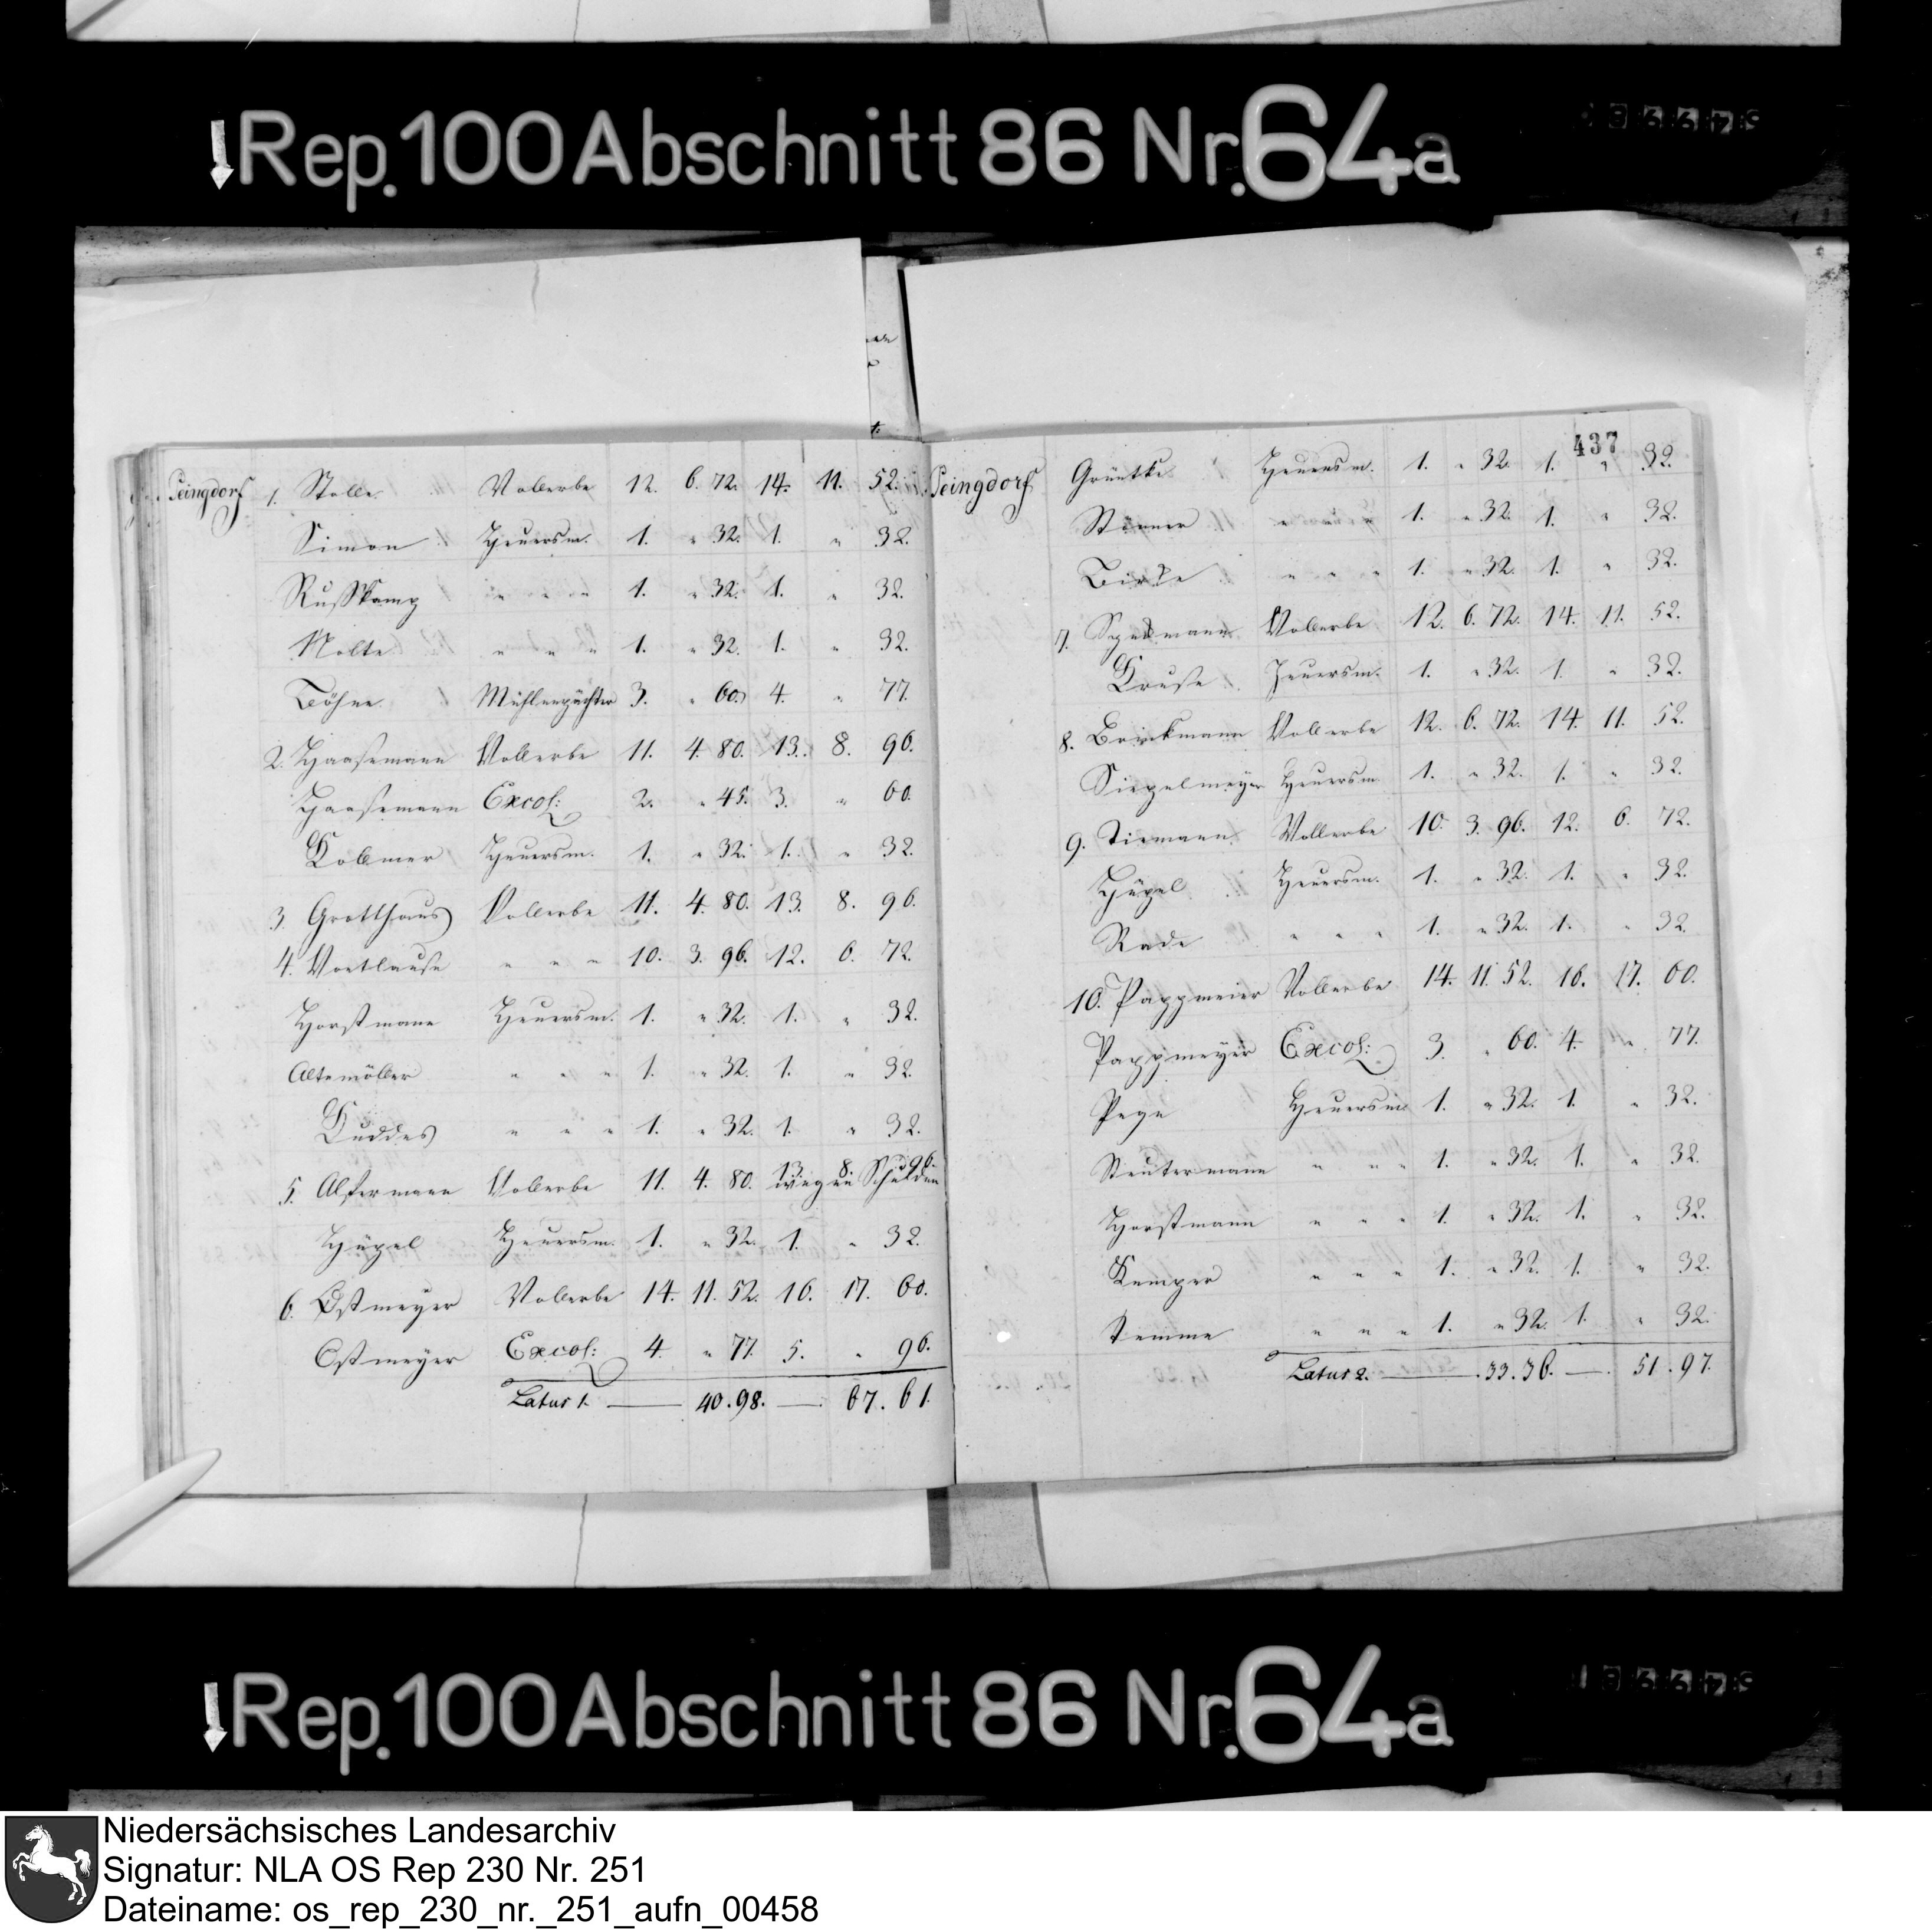 Rep. 100 Abschnitt 86 Nr. 64a
Peingdorf 1. Stolle Vollerbe 12. 6. 72. 14. 11. 52.
Simon Heuersm. 1. " 32. 1. " 32.
Russkamp " " " 1. " 32. 1. " 32.
Nolte " " " 1. " 32. 1. " 32.
Böhne Mühlenpächter 3. " 60. 4. " 77.
2. Haasemann Vollerbe 11. 4. 80. 13. 8. 96.
Haasemann Excol: 2. " 45. 3. " 60.
Kollmer Heuersm. 1. " 32. 1. " 32.
3. Grotthaus Vollerbe 11. 4. 80. 13. 8. 96.
4. Vortlause " " " 10. 3. 96. 12. 6. 72.
Horstmann Heuersm. 1. " 32. 1. " 32.
Altemöller " " " 1. " 32. 1. " 32.
Kuddes " " " 1. " 32. 1. " 32.
5. Alfermann Vollerbe 11. 4. 80. 13. 8. 96.
wegen Schulden
Hügel Heuersm. 1. " 32. 1. " 32.
6. Ostmeyer Vollerbe 14. 11. 52. 16. 17. 60.
Ostmeyer Excol: 4. " 77. 5. " 96.
Latus 1. 40. 98. 67. 61.
437
Peingdorf Grüntke Heuersm. 1. " 32. 1. " 32.
Störmer " " " 1. " 32. 1. " 32.
" " " 1. " 32. 1. " 32.
7. Vollerbe 12. 6. 72. 14. 11. 52.
Kruse Heuersm. 1. " 32. 1. " 32.
8. Borckmann Vollerbe 12. 6. 72. 14. 11. 52.
Siegelmeyer Heuersm. 1. " 32. 1. " 32.
9. Tiemann Vollerbe 10. 3. 96. 12. 6. 72.
Hügel Heuersm. 1. " 32. 1. " 32.
Rade " " " 1. " 32. 1. " 32.
10. Pappmeier Vollerbe 14. 11. 52. 16. 17. 60.
Pappmeyer Excol: 3. " 60. 4. " 77.
Page Heuersm. 1. " 32. 1. " 32.
Steutermann " " " 1. " 32. 1. " 32.
Horstmann " " " 1. " 32. 1. " 32.
Kemper " " " 1. " 32. 1. " 32.
Temme " " " 1. " 32. 1. " 32.
Latus 2. 33. 36. 51. 97.
Rep. 100 Abschnitt 86 Nr. 64a
Niedersächsisches Landesarchiv
Signatur: NLA OS Rep 230 Nr. 251
Dateiname: os_rep_230_nr._251_aufn_00458